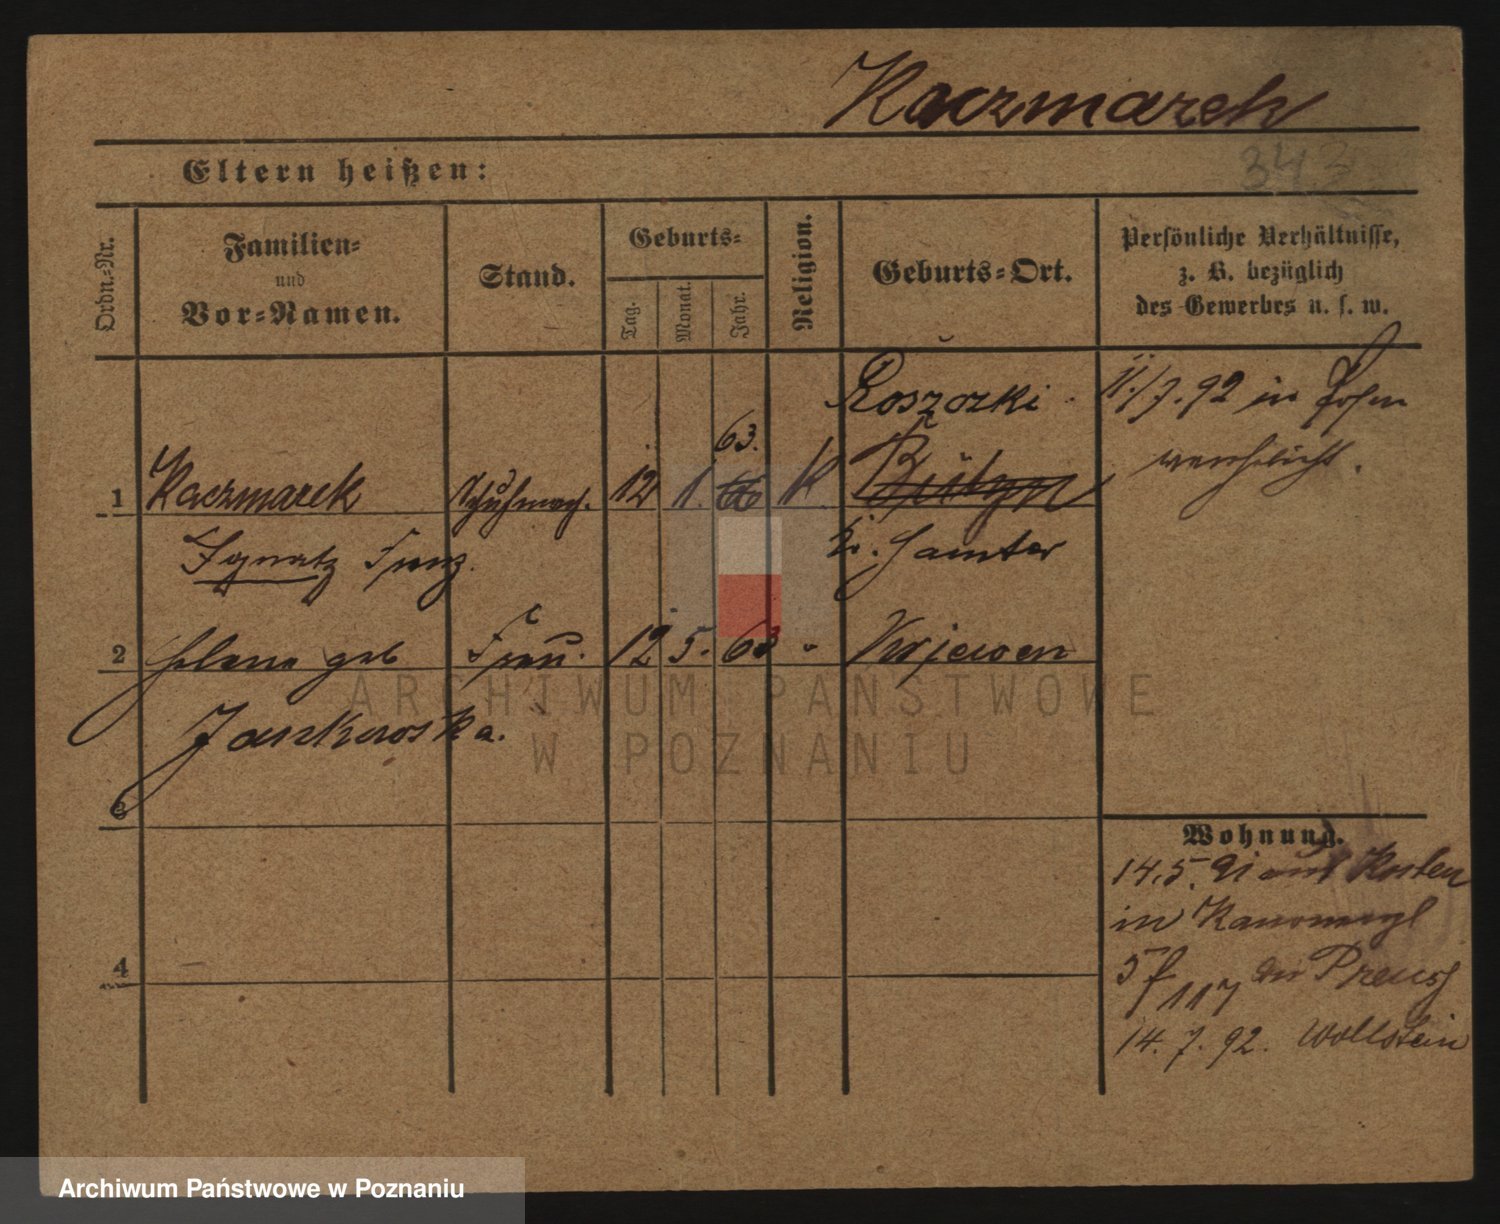 Kaczmarek
Eltern heißen:
343
Ordn.-Nr.
Familien-
und
Vor-Namen.
Stand.
Geburts-
Tag.
Monat.
Jahr.
Religion.
Geburts-Ort.
Persönliche Verhältnisse,
z. B. bezüglich
des Gewerbes u. s. w.
1 Kaczmarek Schuhmach. 12 1. 63. K
Ignatz Franz.
Roszczki
Kr. Samter
11./7. 92 in Posen
verehelicht.
2 Helene geb Frau. 12 5. 63 "
Jankowska.
3
4
Wohnung.
14.5. 91 aus Kosten
in
5 f 117 Preuss
14. 7. 92. Wollstein
ARCHIWUM PAŃSTWOWE
W POZNANIU
Archiwum Państwowe w Poznaniu